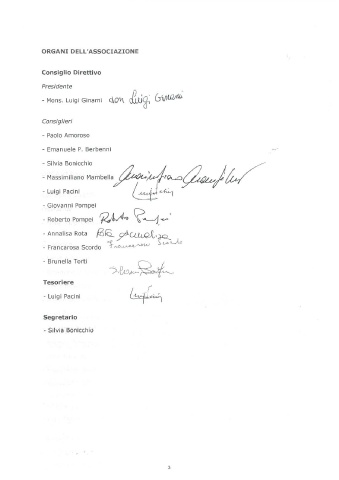 ORGANI DELL'ASSOCIAZIONE
Consiglio Direttivo
Presidente
- Mons. Luigi Ginami don Luigi Ginami
Consiglieri
- Paolo Amoroso
- Emanuele P. Berbenni
- Silvia Bonicchio
- Massimiliano Mambella
- Luigi Pacini
- Giovanni Pompei
- Roberto Pompei Roberto Pompei
- Annalisa Rota Rota Annalisa
- Francarosa Scordo Francarosa Scordo
- Brunella Terti
Tesoriere
- Luigi Pacini
Segretario
- Silvia Bonicchio